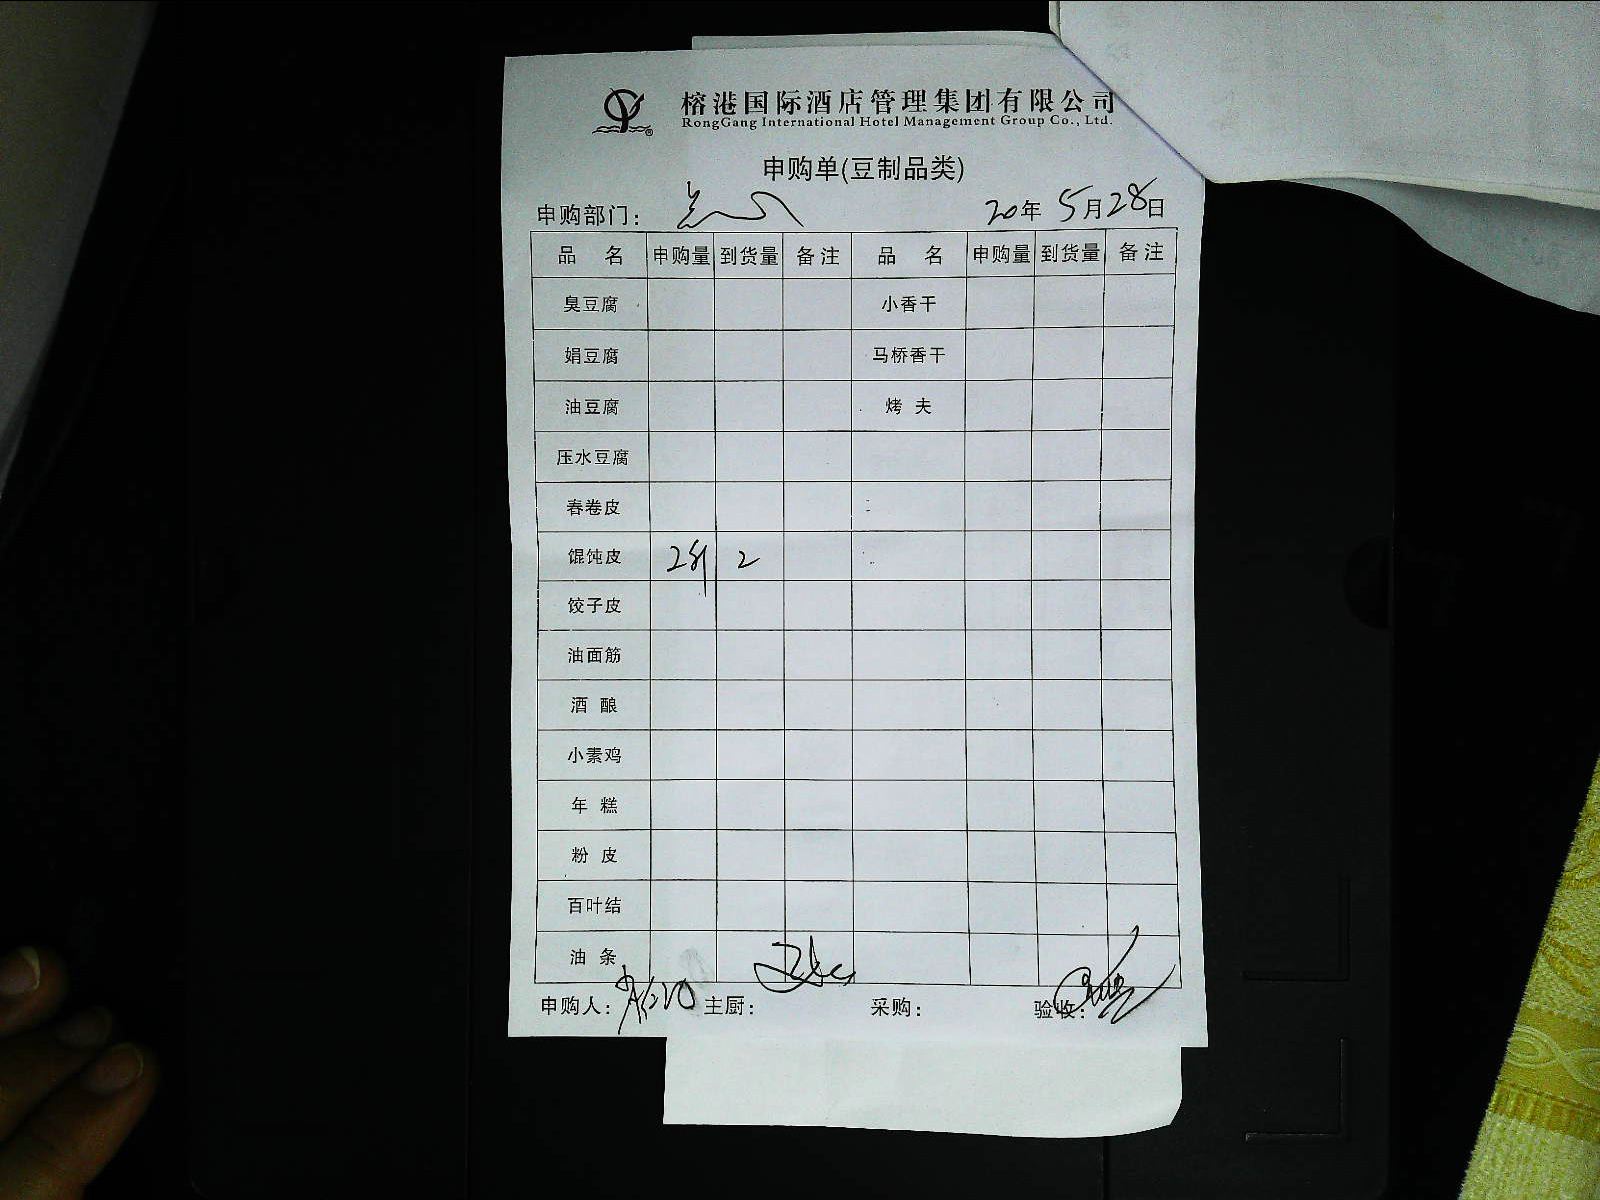 榕港国际酒店管理集团有限公司
RongGang International Hotel Management Group Co., Ltd.
申购单(豆制品类)
申购部门： 20年 5月28日
品 名 申购量 到货量 备注 品 名 申购量 到货量 备注
臭豆腐 小香干
娟豆腐 马桥香干
油豆腐 烤 夫
压水豆腐
春卷皮
馄饨皮 2斤 2
饺子皮
油面筋
酒 酿
小素鸡
年 糕
粉 皮
百叶结
油 条
申购人： 主厨： 采购： 验收：